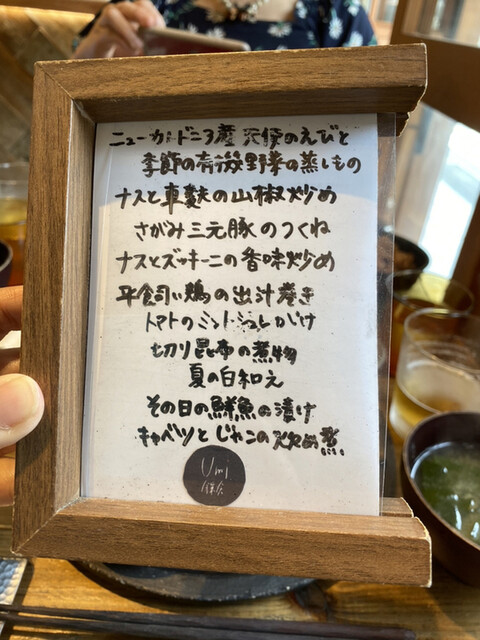 ニューカレドニア産 天使のえびと
季節の有機野菜の蒸しもの
ナスと車麩の山椒炒め
さがみ三元豚のつくね
ナスとズッキーニの香味炒め
平飼い鶏の出汁巻き
トマトのミントジュレがけ
切り昆布の煮物
夏の白和え
その日の鮮魚の漬け
キャベツとじゃこの炊め煮
Umi